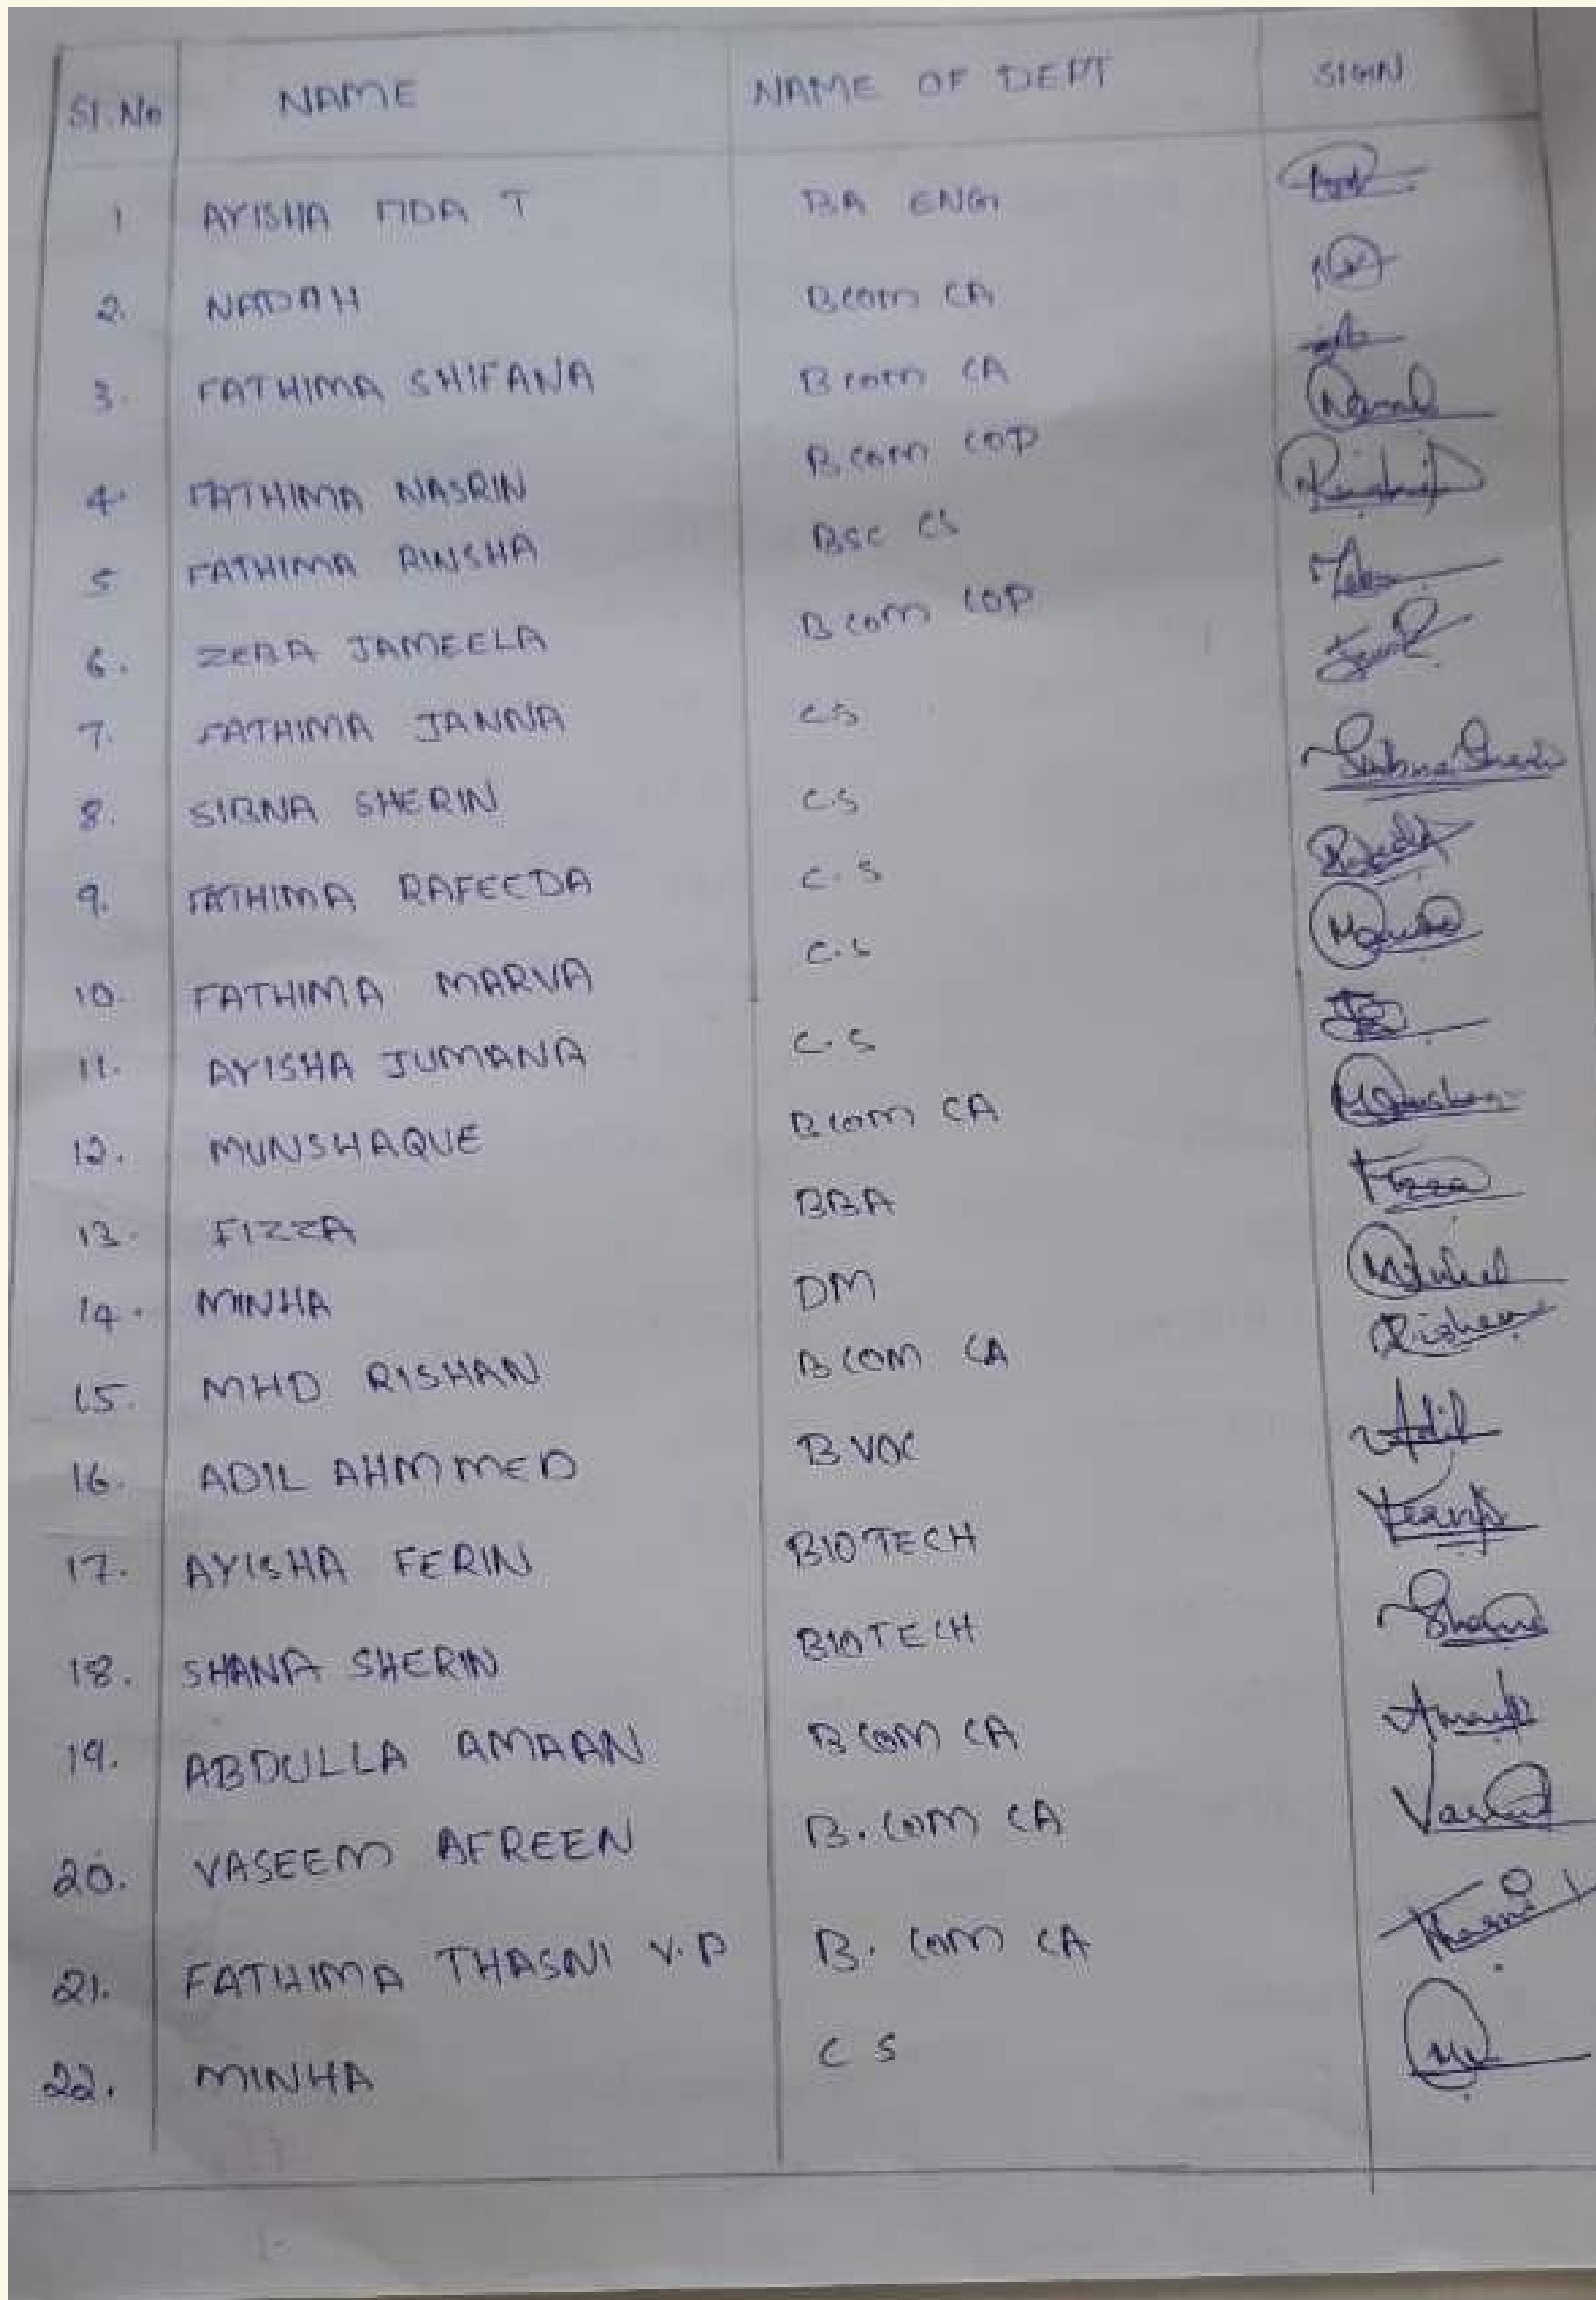 Sl. No NAME NAME OF DEPT SIGN
1 AYISHA FIDA T BA ENG
2. NADAH BCOM CA
3. FATHIMA SHIFANA BCOM CA
4. FATHIMA NASRIN BCOM COP
5 FATHIMA RINSHA BSC CS
6. ZEBA JAMEELA BCOM COP
7. FATHIMA JANNA CS
8. SIBNA SHERIN C.S Sibna Sherin
9. FATHIMA RAFEEDA C.S
10. FATHIMA MARVA C.S
11. AYISHA JUMANA C.S
12. MUNSHAQUE BCOM CA
13. FIZZA BBA Fizza
14. MINHA DM
15. MHD RISHAN BCOM CA Rishan
16. ADIL AHMMED B VOC Adil
17. AYISHA FERIN BIOTECH
18. SHANA SHERIN BIOTECH Shana
19. ABDULLA AMAAN BCOM CA
20. VASEEM AFREEN B.COM CA
21. FATHIMA THASNI V.P B. COM CA Thasni
22. MINHA C S